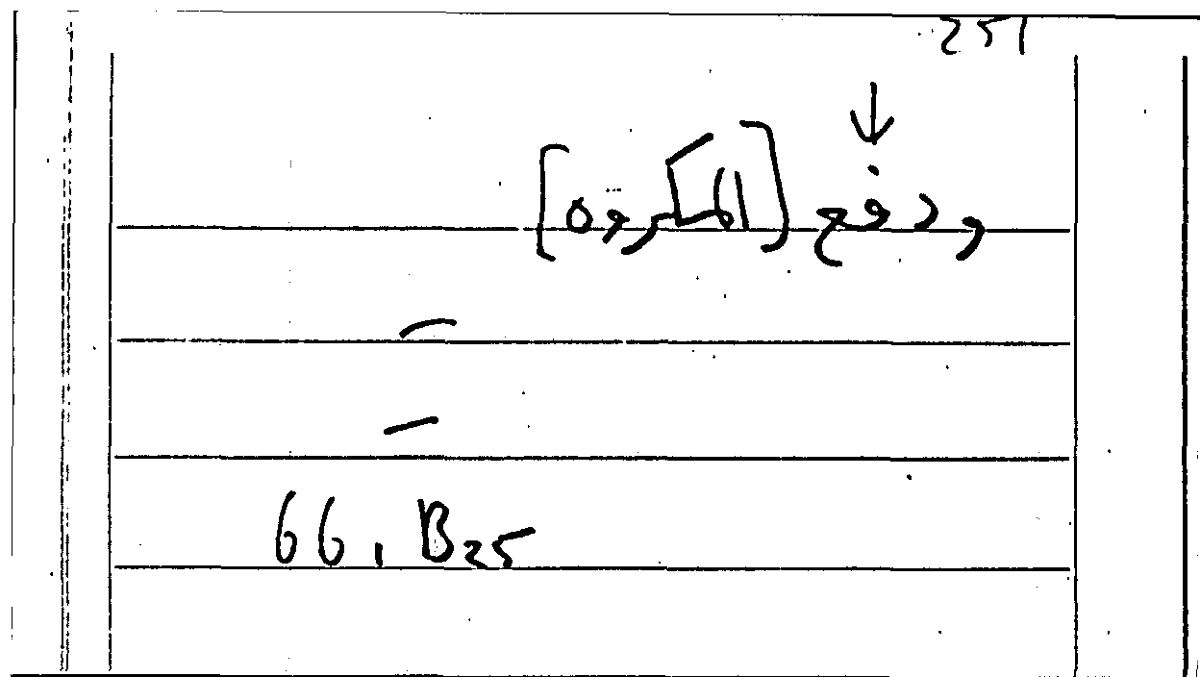 251
ودفع [المكروه]
66, B25